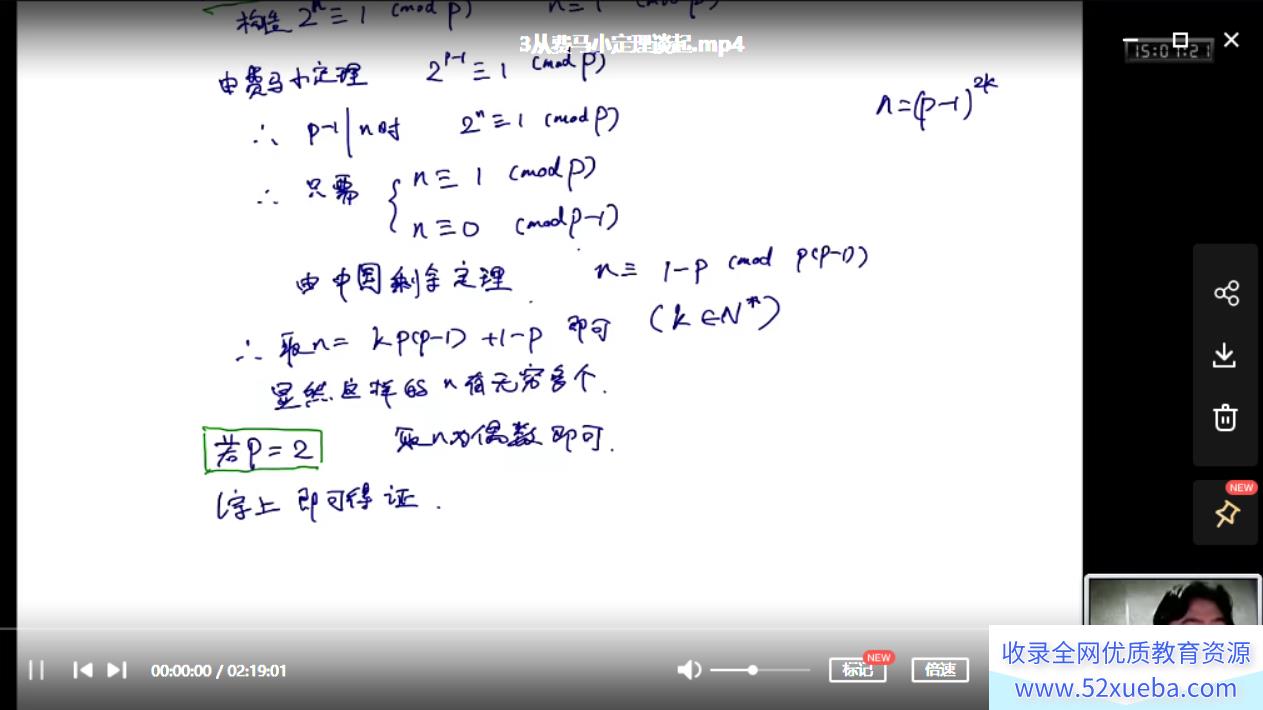 构造 2ⁿ ≡ 1 (mod p) n ≡ 1 (mod p)
3从费马小定理谈起.mp4
15:07:21
由费马小定理 2^{p-1} ≡ 1 (mod p)
n=(p-1)^{2k}
∴ p-1|n时 2ⁿ ≡ 1 (mod p)
∴ 只需 { n ≡ 1 (mod p)
n ≡ 0 (mod p-1)
由中国剩余定理 n ≡ 1-p (mod p(p-1))
∴ 取n= kp(p-1)+1-p 即可 (k∈N*)
显然这样的n有无穷多个.
若p=2 取n为偶数即可.
综上即可得证.
NEW
00:00:00 / 02:19:01
标记
NEW
倍速
收录全网优质教育资源
www.52xueba.com